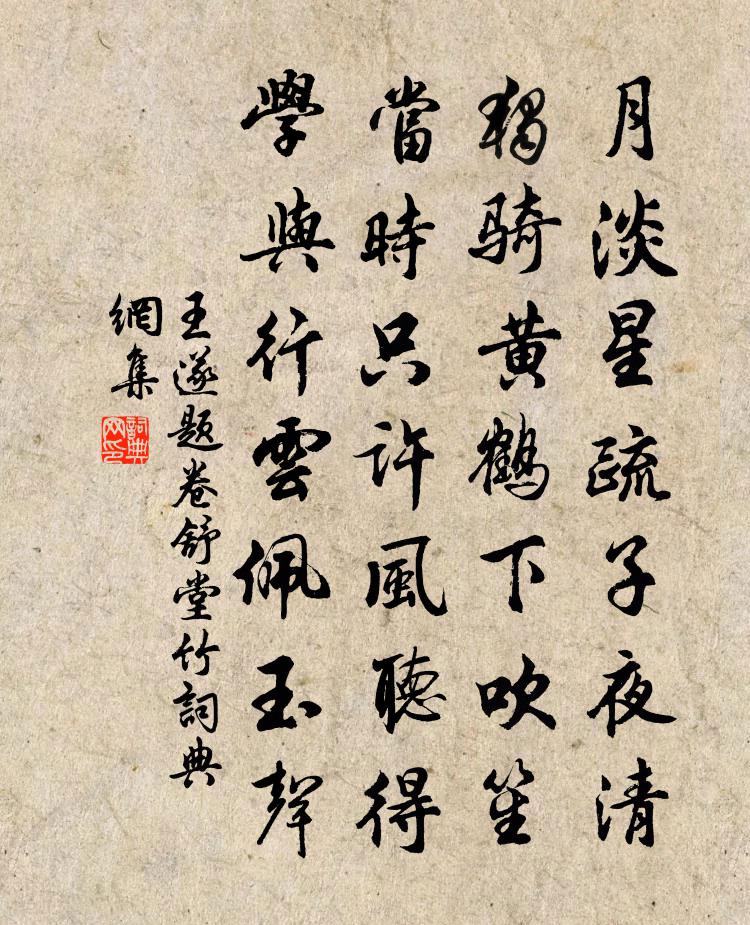 月淡星疏子夜清
獨騎黄鶴下吹笙
當時只許風聽得
學與行雲佩玉聲
王遂题卷舒堂竹詞典
網集
詞典
网印